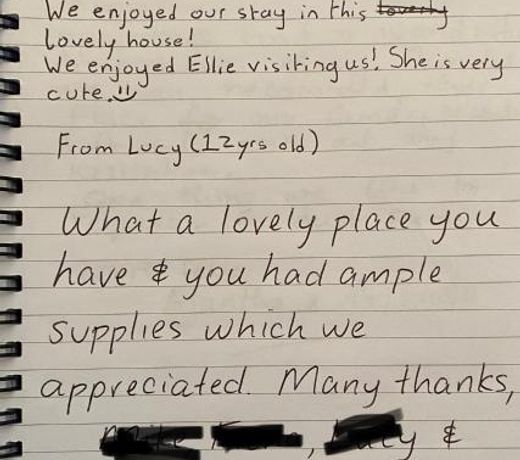 We enjoyed our stay in this
Lovely house!
We enjoyed Ellie visiting us! She is very
cute.
From Lucy (12yrs old)
What a lovely place you
have & you had ample
supplies which we
appreciated. Many thanks,
, &